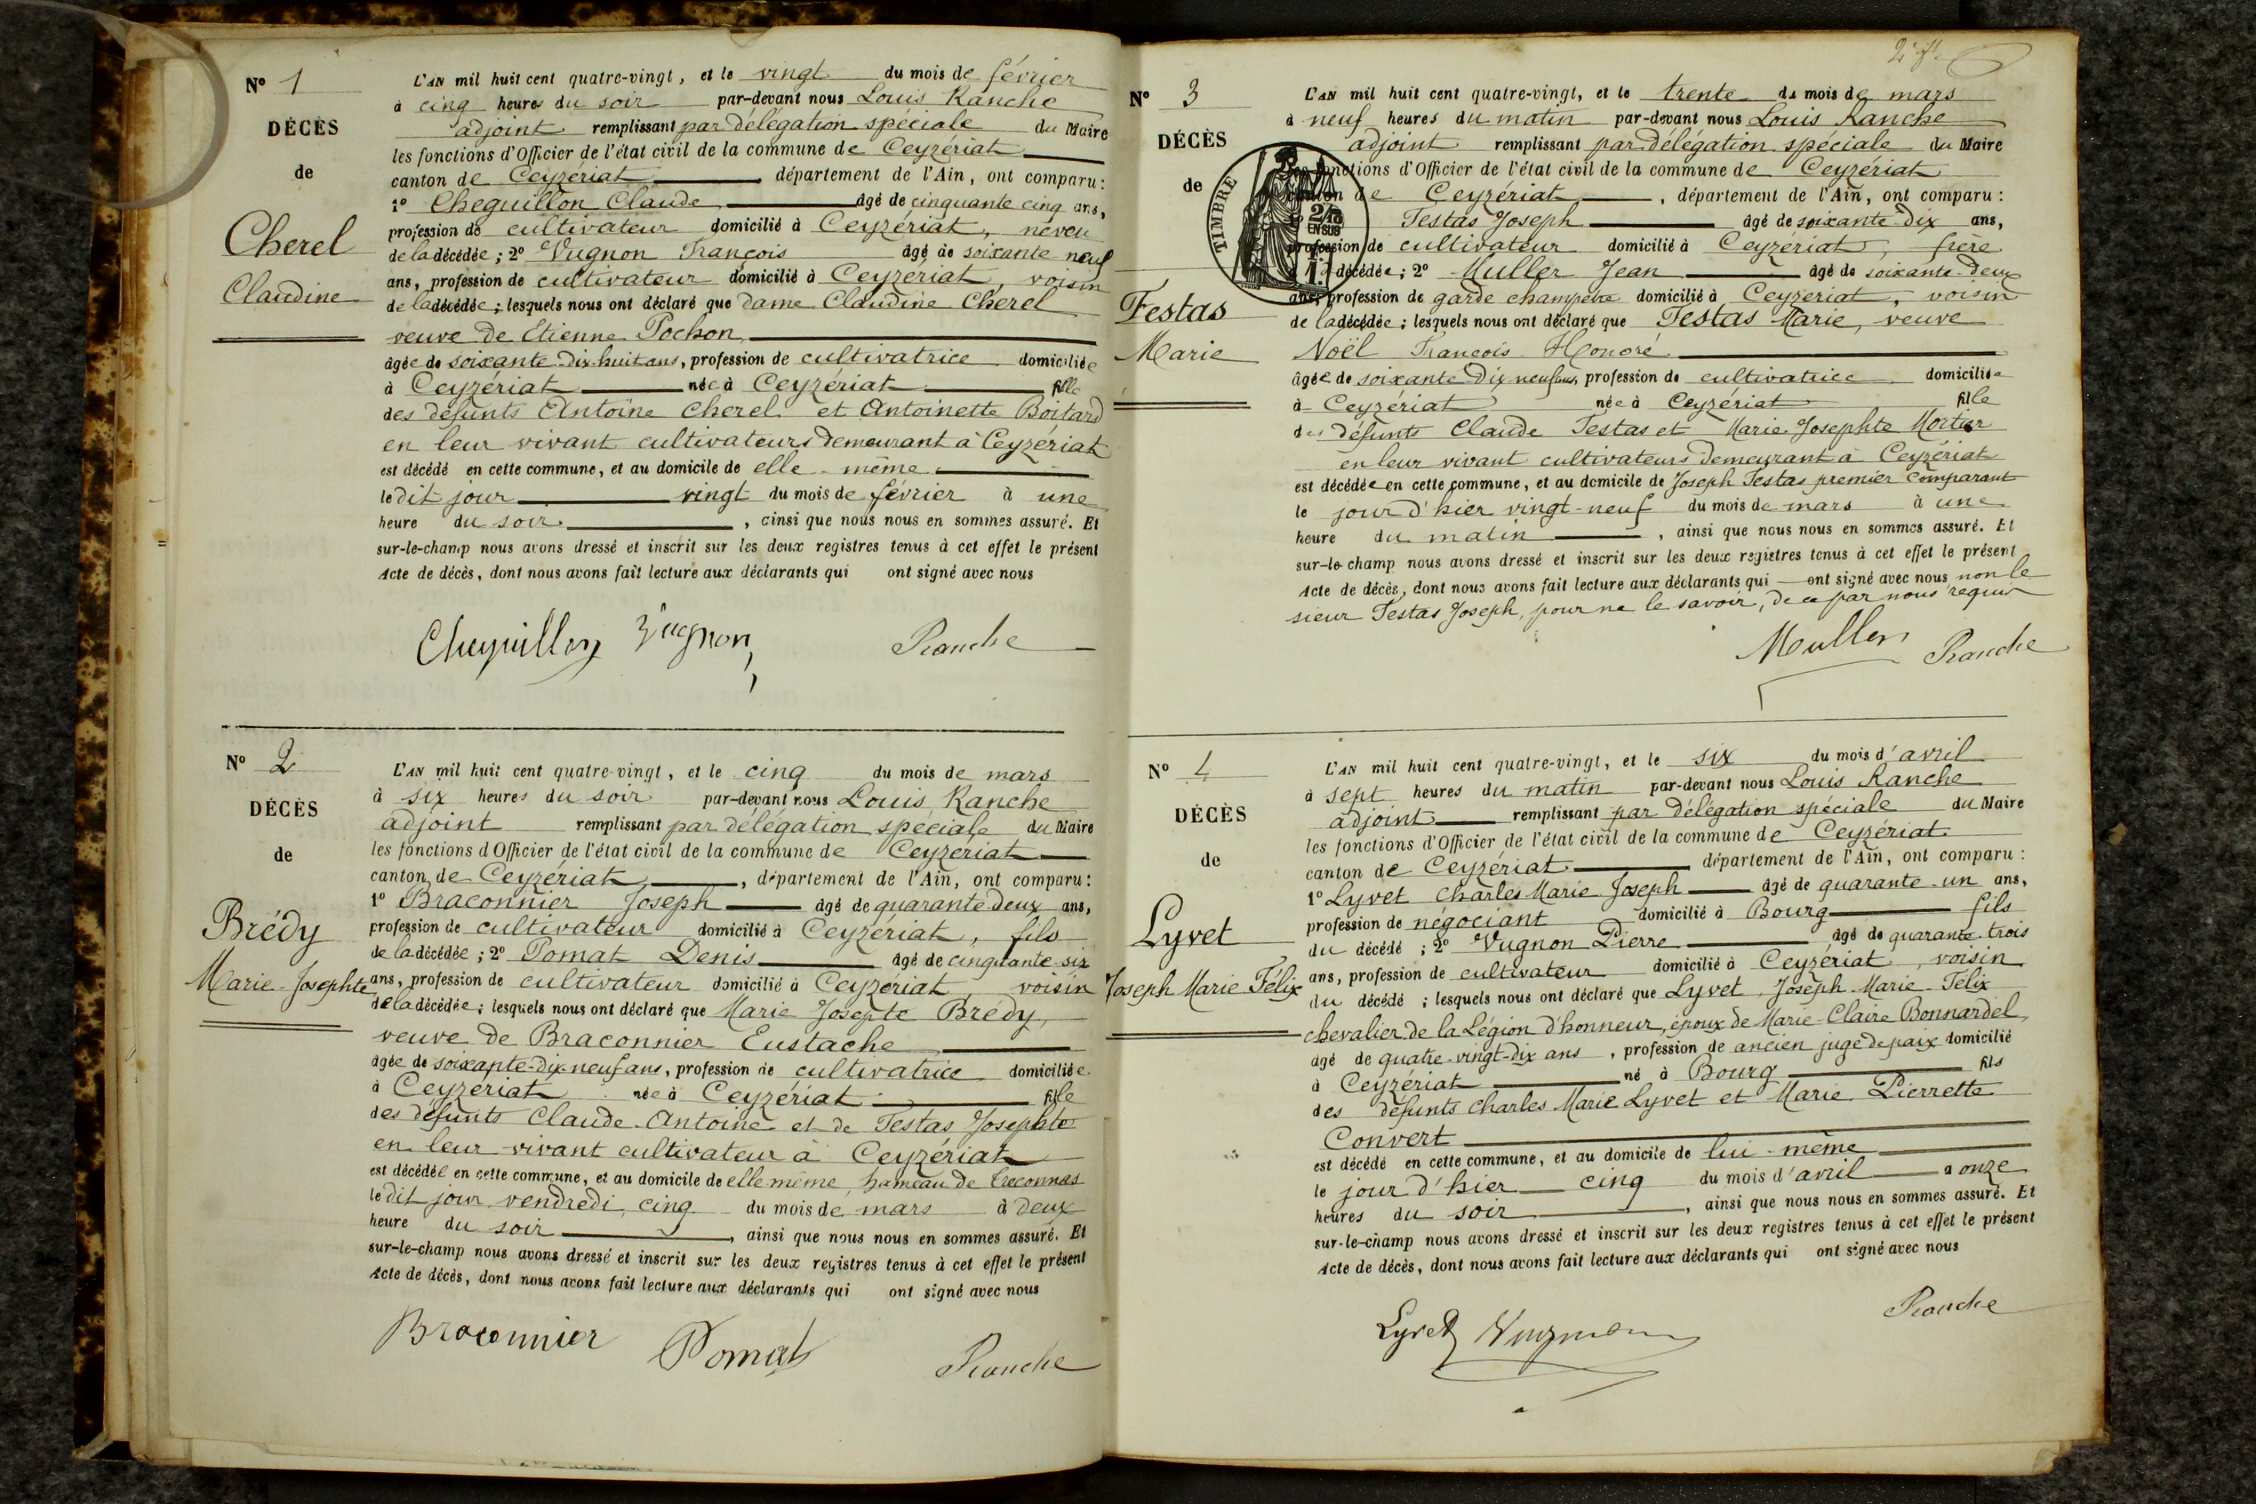 N° 1
DÉCÈS
de
Cherel
Claudine
L'AN mil huit cent quatre-vingt, et le vingt du mois de février
à cinq heures du soir par-devant nous Louis Ranche
adjoint remplissant par délégation spéciale du Maire
les fonctions d'Officier de l'état civil de la commune de Ceyzériat
canton de Ceyzériat département de l'Ain, ont comparu :
1° Cheguillon Claude âgé de cinquante cinq ans,
profession de cultivateur domicilié à Ceyzériat, neveu
de la décédée ; 2° Vugnon François âgé de soixante neuf
ans, profession de cultivateur domicilié à Ceyzériat, voisin
de la décédée ; lesquels nous ont déclaré que dame Claudine Cherel
veuve de Etienne Pochon
âgée de soixante-dix-huit ans, profession de cultivatrice domiciliée
à Ceyzériat née à Ceyzériat fille
des défunts Antoine Cherel et Antoinette Boitard
en leur vivant cultivateurs demeurant à Ceyzériat
est décédé en cette commune, et au domicile de elle-même
le dit jour vingt du mois de février à une
heure du soir, ainsi que nous nous en sommes assuré. Et
sur-le-champ nous avons dressé et inscrit sur les deux registres tenus à cet effet le présent
Acte de décès, dont nous avons fait lecture aux déclarants qui ont signé avec nous
Cheguillon Vugnon Ranche
N° 2
DÉCÈS
de
Brédy
Marie-Josephte
L'AN mil huit cent quatre-vingt, et le cinq du mois de mars
à six heures du soir par-devant nous Louis Ranche
adjoint remplissant par délégation spéciale du Maire
les fonctions d'Officier de l'état civil de la commune de Ceyzériat
canton de Ceyzériat, département de l'Ain, ont comparu :
1° Braconnier Joseph âgé de quarante-deux ans,
profession de cultivateur domicilié à Ceyzériat, fils
de la décédée ; 2° Pomat Denis âgé de cinquante-six
ans, profession de cultivateur domicilié à Ceyzériat voisin
de la décédée ; lesquels nous ont déclaré que Marie Josepte Brédy,
veuve de Braconnier Eustache
âgée de soixante-dix-neuf ans, profession de cultivatrice domiciliée
à Ceyzériat née à Ceyzériat fille
des défunts Claude-Antoine et de Testas Josephte
en leur vivant cultivateur à Ceyzériat
est décédée en cette commune, et au domicile de elle même, hameau de Treconnas
le dit jour vendredi cinq du mois de mars à deux
heure du soir, ainsi que nous nous en sommes assuré. Et
sur-le-champ nous avons dressé et inscrit sur les deux registres tenus à cet effet le présent
Acte de décès, dont nous avons fait lecture aux déclarants qui ont signé avec nous
Braconnier Pomat Ranche
N° 3
DÉCÈS
de
Testas
Marie
TIMBRE
2/10
EN SUS
L'AN mil huit cent quatre-vingt, et le trente du mois de mars
à neuf heures du matin par-devant nous Louis Ranche
adjoint remplissant par délégation spéciale du Maire
les fonctions d'Officier de l'état civil de la commune de Ceyzériat
canton de Ceyzériat, département de l'Ain, ont comparu :
Testas Joseph âgé de soixante-dix ans,
profession de cultivateur domicilié à Ceyzériat, frère
décédée ; 2° Muller Jean âgé de soixante-deux
ans, profession de garde champêtre domicilié à Ceyzériat, voisin
de la décédée ; lesquels nous ont déclaré que Testas Marie, veuve
Noël François Honoré
âgée de soixante-dix neuf ans, profession de cultivatrice domiciliée
à Ceyzériat née à Ceyzériat fille
des défunts Claude Testas et Marie-Josephte Mortier
en leur vivant cultivateurs demeurant à Ceyzériat
est décédée en cette commune, et au domicile de Joseph Testas premier comparant
le jour d'hier vingt-neuf du mois de mars à une
heure du matin, ainsi que nous nous en sommes assuré. Et
sur-le-champ nous avons dressé et inscrit sur les deux registres tenus à cet effet le présent
Acte de décès, dont nous avons fait lecture aux déclarants qui ont signé avec nous non le
sieur Testas Joseph, pour ne le savoir, de ce par nous requis
Muller Ranche
N° 4
DÉCÈS
de
Lyvet
Joseph Marie Félix
L'AN mil huit cent quatre-vingt, et le six du mois d'avril
à sept heures du matin par-devant nous Louis Ranche
adjoint remplissant par délégation spéciale du Maire
les fonctions d'Officier de l'état civil de la commune de Ceyzériat
canton de Ceyzériat département de l'Ain, ont comparu :
1° Lyvet Charles Marie Joseph âgé de quarante-un ans,
profession de négociant domicilié à Bourg fils
du décédé ; 2° Vugnon Pierre âgé de quarante-trois
ans, profession de cultivateur domicilié à Ceyzériat, voisin
du décédé ; lesquels nous ont déclaré que Lyvet Joseph-Marie-Félix
chevalier de la Légion d'honneur, époux de Marie-Claire Bonnardel
âgé de quatre-vingt-dix ans, profession de ancien juge de paix domicilié
à Ceyzériat né à Bourg fils
des défunts Charles Marie Lyvet et Marie Pierrette
Convert
est décédé en cette commune, et au domicile de lui-même
le jour d'hier cinq du mois d'avril à onze
heures du soir, ainsi que nous nous en sommes assuré. Et
sur-le-champ nous avons dressé et inscrit sur les deux registres tenus à cet effet le présent
Acte de décès, dont nous avons fait lecture aux déclarants qui ont signé avec nous
Lyvet Vugnon Ranche